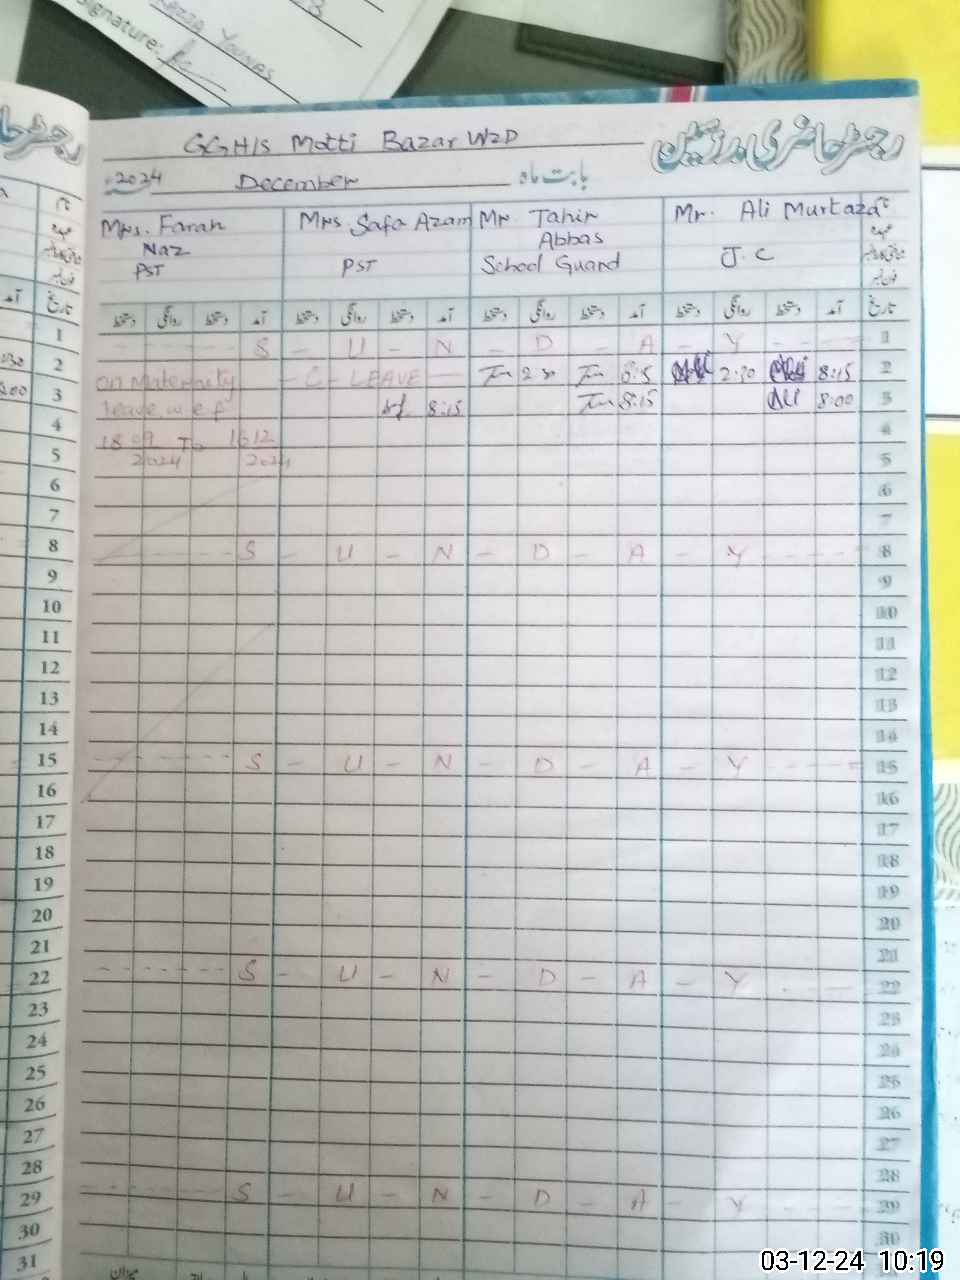 YOUNAS
Signature:
GGHS Motti Bazar WZD
رجسٹر حاضری مدرسین
2024 December بابت ماہ
Mrs. Farah Naz PST
Mrs Safa Azam PST
Mr. Tahir Abbas School Guard
Mr. Ali Murtaza J.C
تاریخ آمد دستخط روانگی دستخط آمد دستخط روانگی دستخط آمد دستخط روانگی دستخط آمد دستخط روانگی دستخط تاریخ
1 S - U - N - D - A - Y 1
2 on Maternity - C - LEAVE 2:30 2:30 8:15 2
3 leave w.e.f 8:15 8:15 Ali 8:00 3
4 18 09 To 16 12 4
5 2024 2024 5
6 6
7 7
8 S - U - N - D - A - Y 8
9 9
10 10
11 11
12 12
13 13
14 14
15 S - U - N - D - A - Y 15
16 16
17 17
18 18
19 19
20 20
21 21
22 S - U - N - D - A - Y 22
23 23
24 24
25 25
26 26
27 27
28 28
29 S - U - N - D - A - Y 29
30 30
31
میزان
03-12-24 10:19